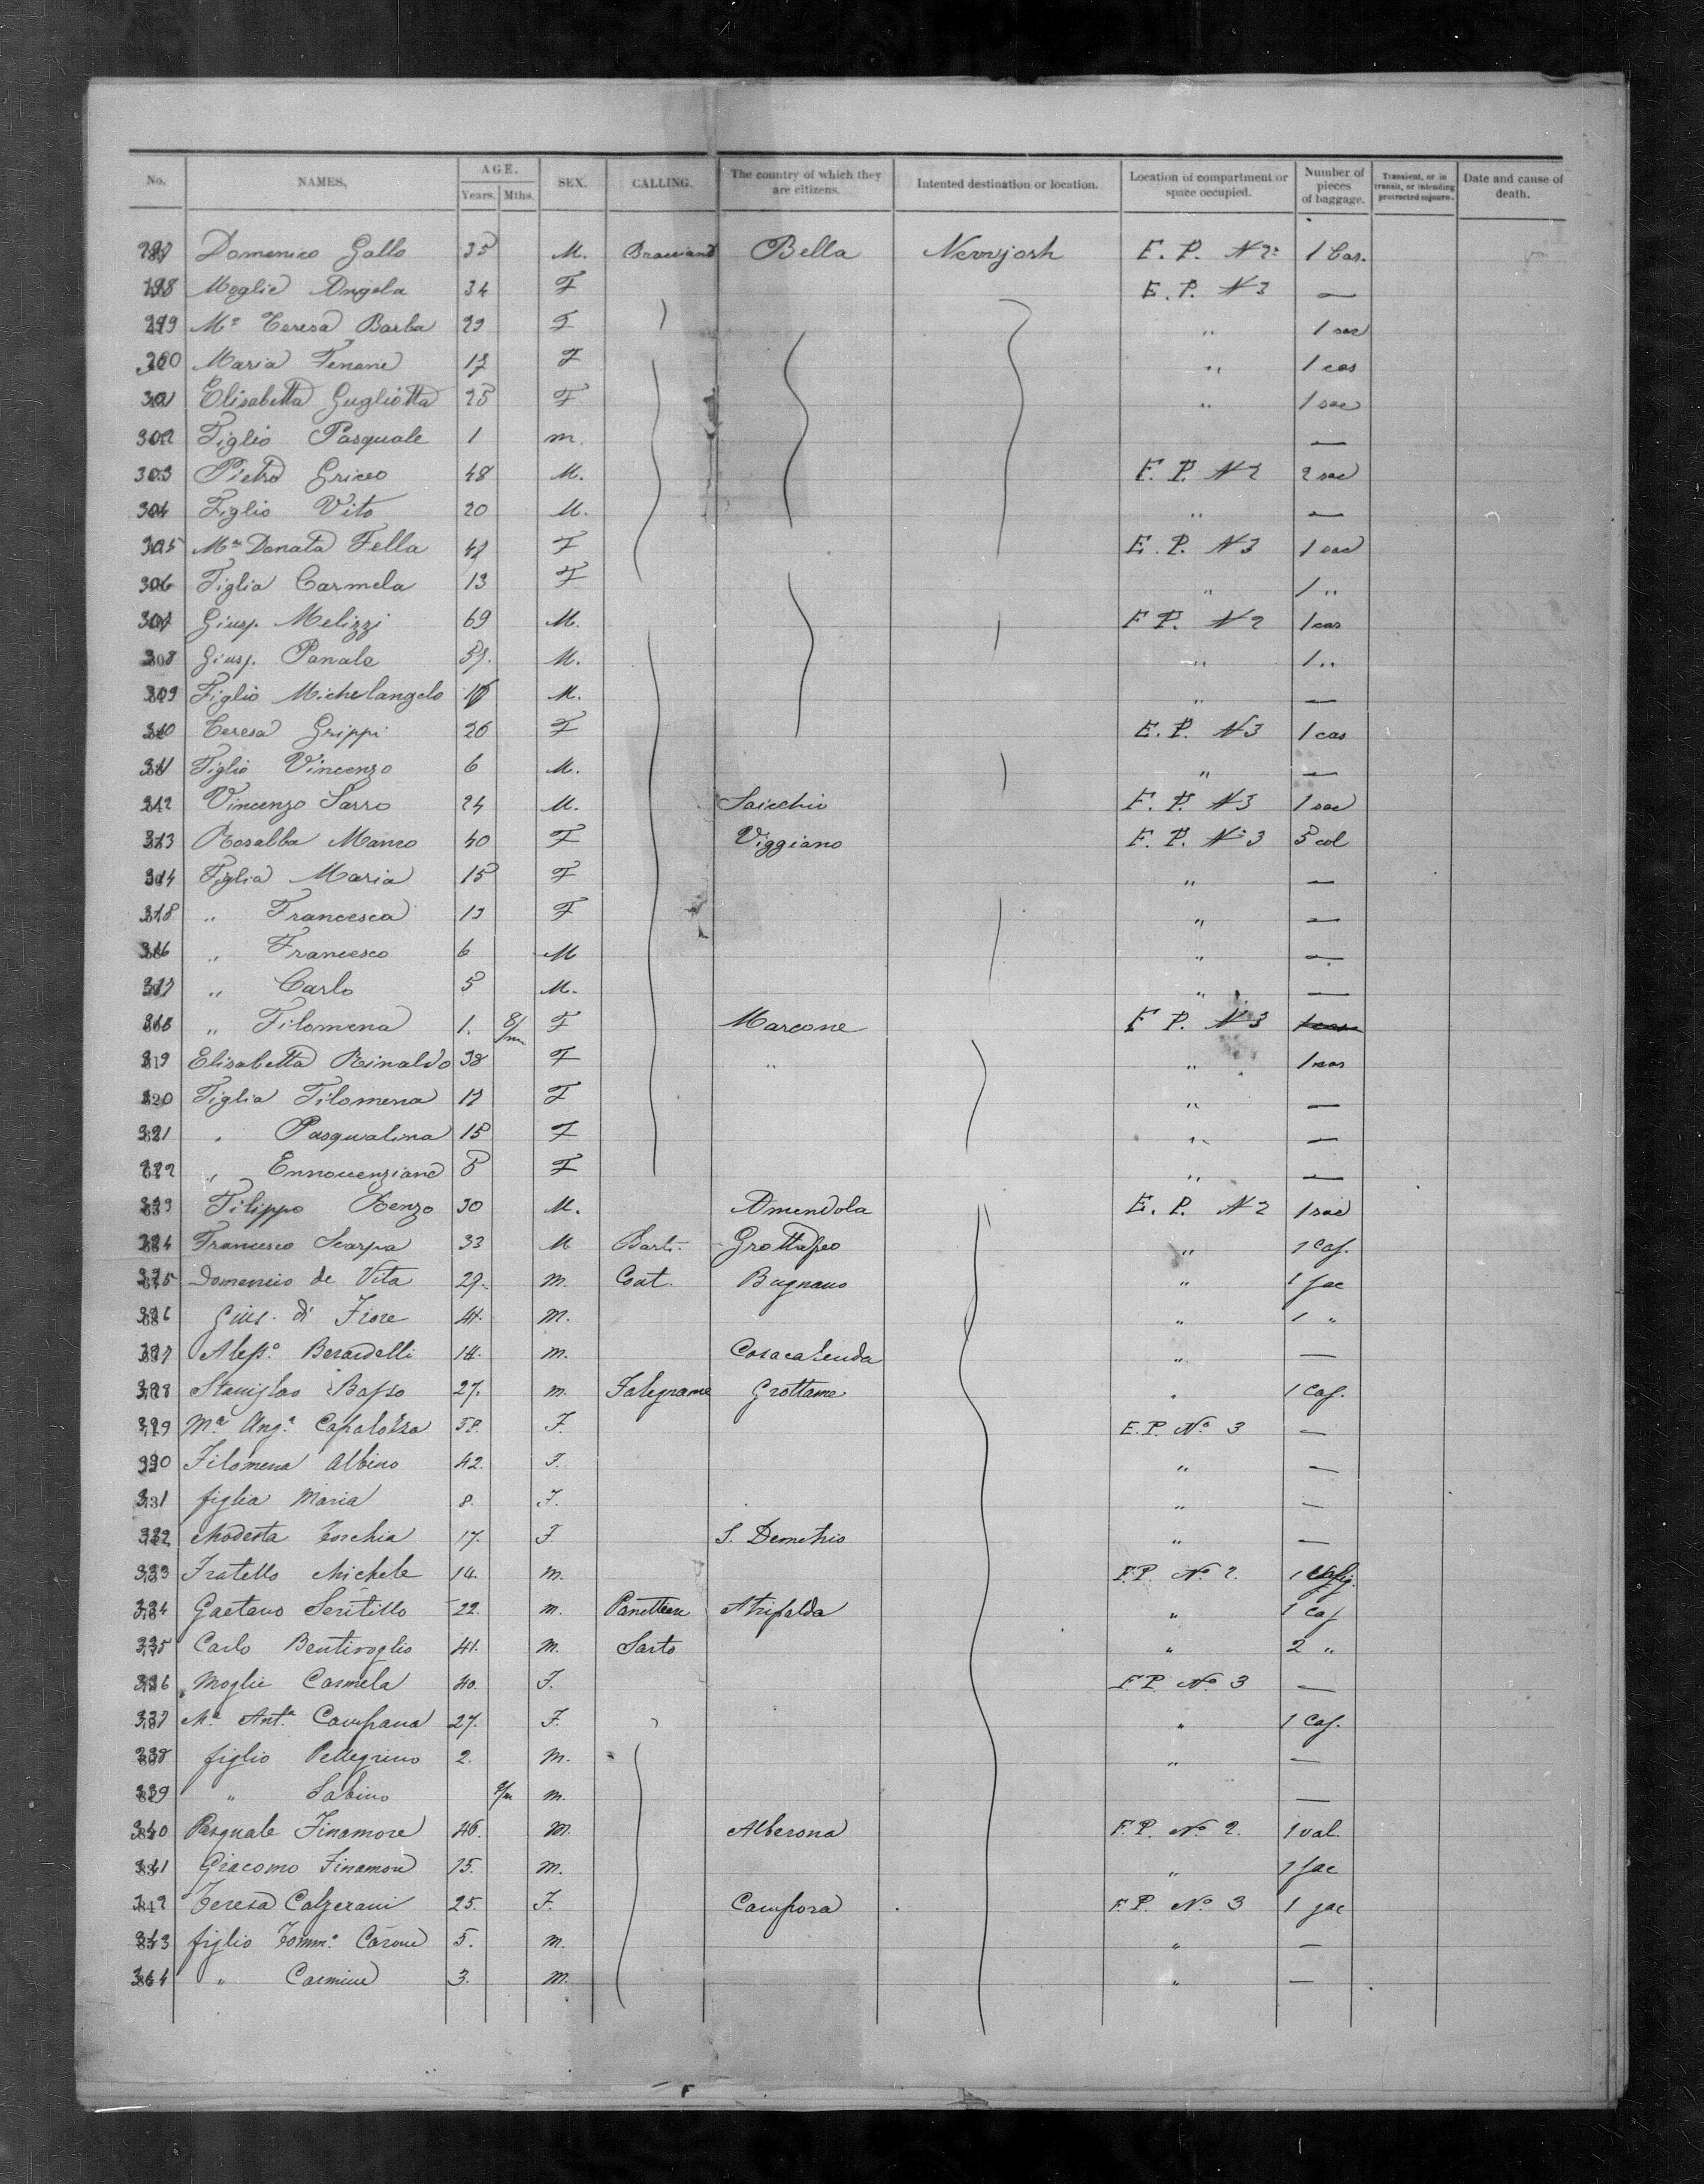 No. NAMES, AGE. Years. Mths. SEX. CALLING. The country of which they are citizens. Intented destination or location. Location of compartment or space occupied. Number of pieces of baggage. Transient, or in transit, or intending protracted sojourn. Date and cause of death.
Domenico Gallo 35 M. Bella E. P. N 2 1 Cas.
298 Moglie Angela 34 F E. P. N 3 —
299 Ma Teresa Barba 23 F " 1 sac
300 Maria 17 F " 1 cas
301 Elisabetta Gugliotta 25 F " 1 sac
302 Figlio Pasquale 1 m. —
303 Pietro Grieco 48 M. E. P. N 2 2 sac
304 Figlio Vito 20 M. " —
305 Ma Donata Fella 47 F E. P. N 3 1 sac
306 Figlia Carmela 13 F " 1 "
307 Giusp. Melizzi 69 M. E P. N 2 1 cas
308 Giusp. Panale 57. M. " 1 "
309 Figlio Michelangelo M. " —
310 Teresa Grippi 26 F E. P. N 3 1 cas
311 Figlio Vincenzo 6 M. " —
312 Vincenzo Sarro 24 M. E. P. N 3 1 sac
313 Rosalba Manco 40 F Viggiano E. P. N 3 5 col
314 Figlia Maria 15 F " —
315 " Francesca 13 F " —
316 " Francesco 6 M " —
317 " Carlo 5 M. " —
318 " Filomena 1. 8/m F Marcone E P. N 3
319 Elisabetta Rinaldo 38 F " " 1 cas
320 Figlia Filomena 17 F " —
321 " Pasqualina 15 F " —
322 " Ennocenziana 5 F " —
323 Filippo Renzo 30 M. Amendola E. P. N 2 1 sac
324 Francesco Scarpa 33 M Barb. " 1 Cas.
325 Domenico de Vita 29. m. Cont. Bugnano " 1 sac
326 Gius. di Fiore 41. M. " 1 "
327 Aless.o Berardelli 14. m. Casacalenda " —
328 Stanislao Basso 27. m. Falegname Grottame " 1 Cas.
329 Ma Anga Capalozza 55. F. E. P. No 3 —
330 Filomena Albino 42. F. " —
331 figlia Maria 8. F. " —
332 Modesta Torchia 17. F. S. Demetrio " —
333 Fratello Michele 14. m. E.P. No 2.
334 Gaetano Seritillo 22. m. Panettiere Atripalda " 1 cas
335 Carlo Bentivoglio 41. M. Sarto " 2 "
336 Moglie Carmela 40. F. E.P. No 3 —
337 Ma Anta Campana 27. F. " 1 Cas.
338 figlio Pellegrino 2. m. " —
339 " Sabino 9/m m. —
340 Pasquale Finamore 46. M. Alberona E.P. No 2. 1 val.
341 Giacomo Finamore 15. m. " 1 sac
342 Teresa Calzerani 25. F. Campora E.P. No 3 1 sac
343 figlio Tomm.o Carone 5. m. " —
344 " Carmine 3. m. " —